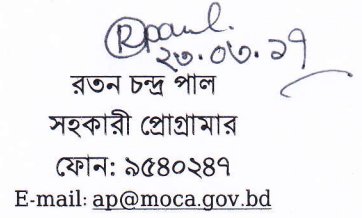 Rpaul.
২৩.০৩.১৭
রতন চন্দ্র পাল
সহকারী প্রোগ্রামার
ফোন: ৯৫৪০২৪৭
E-mail: ap@moca.gov.bd